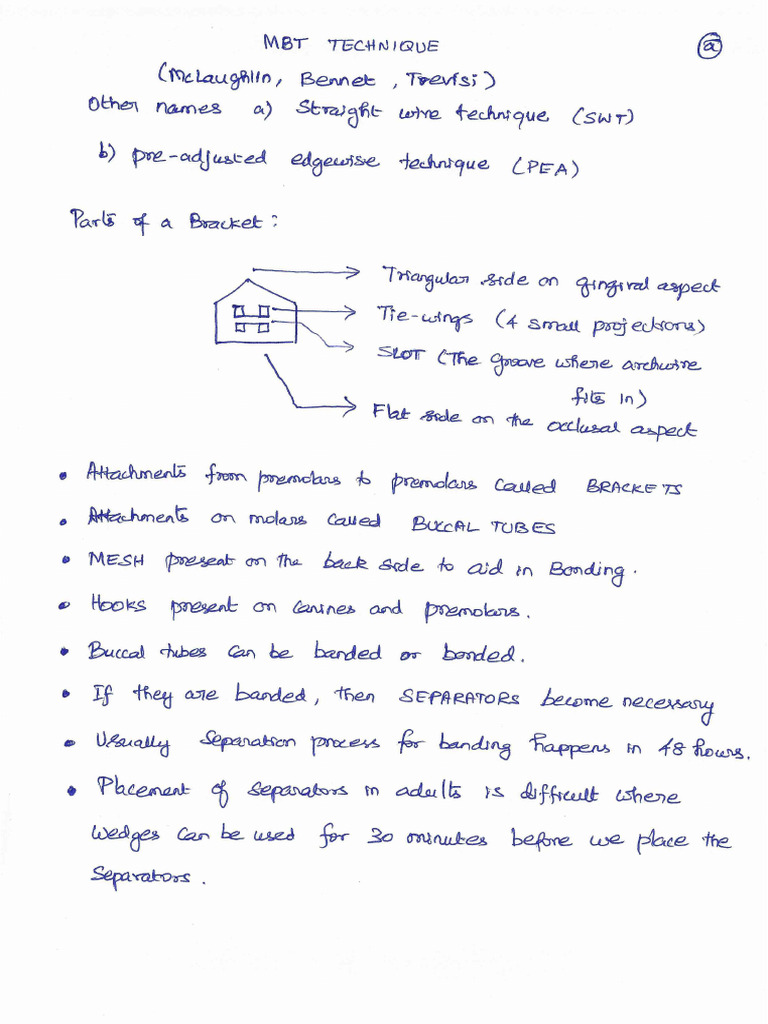 MBT TECHNIQUE
(a)
(McLaughlin, Bennet, Trevisi)
Other names a) Straight wire technique (SWT)
b) pre-adjusted edgewise technique (PEA)
Parts of a Bracket:
Triangular side on gingival aspect
Tie-wings (4 small projections)
SLOT (The groove where archwire
fits in)
Flat side on the occlusal aspect
• Attachments from premolars to premolars called BRACKETS
• Attachments on molars called BUCCAL TUBES
• MESH present on the back side to aid in Bonding.
• Hooks present on canines and premolars.
• Buccal tubes can be banded or bonded.
• If they are banded, then SEPARATORS become necessary
• Usually separation process for banding happens in 48 hours.
• Placement of separators in adults is difficult where
wedges can be used for 30 minutes before we place the
separators.